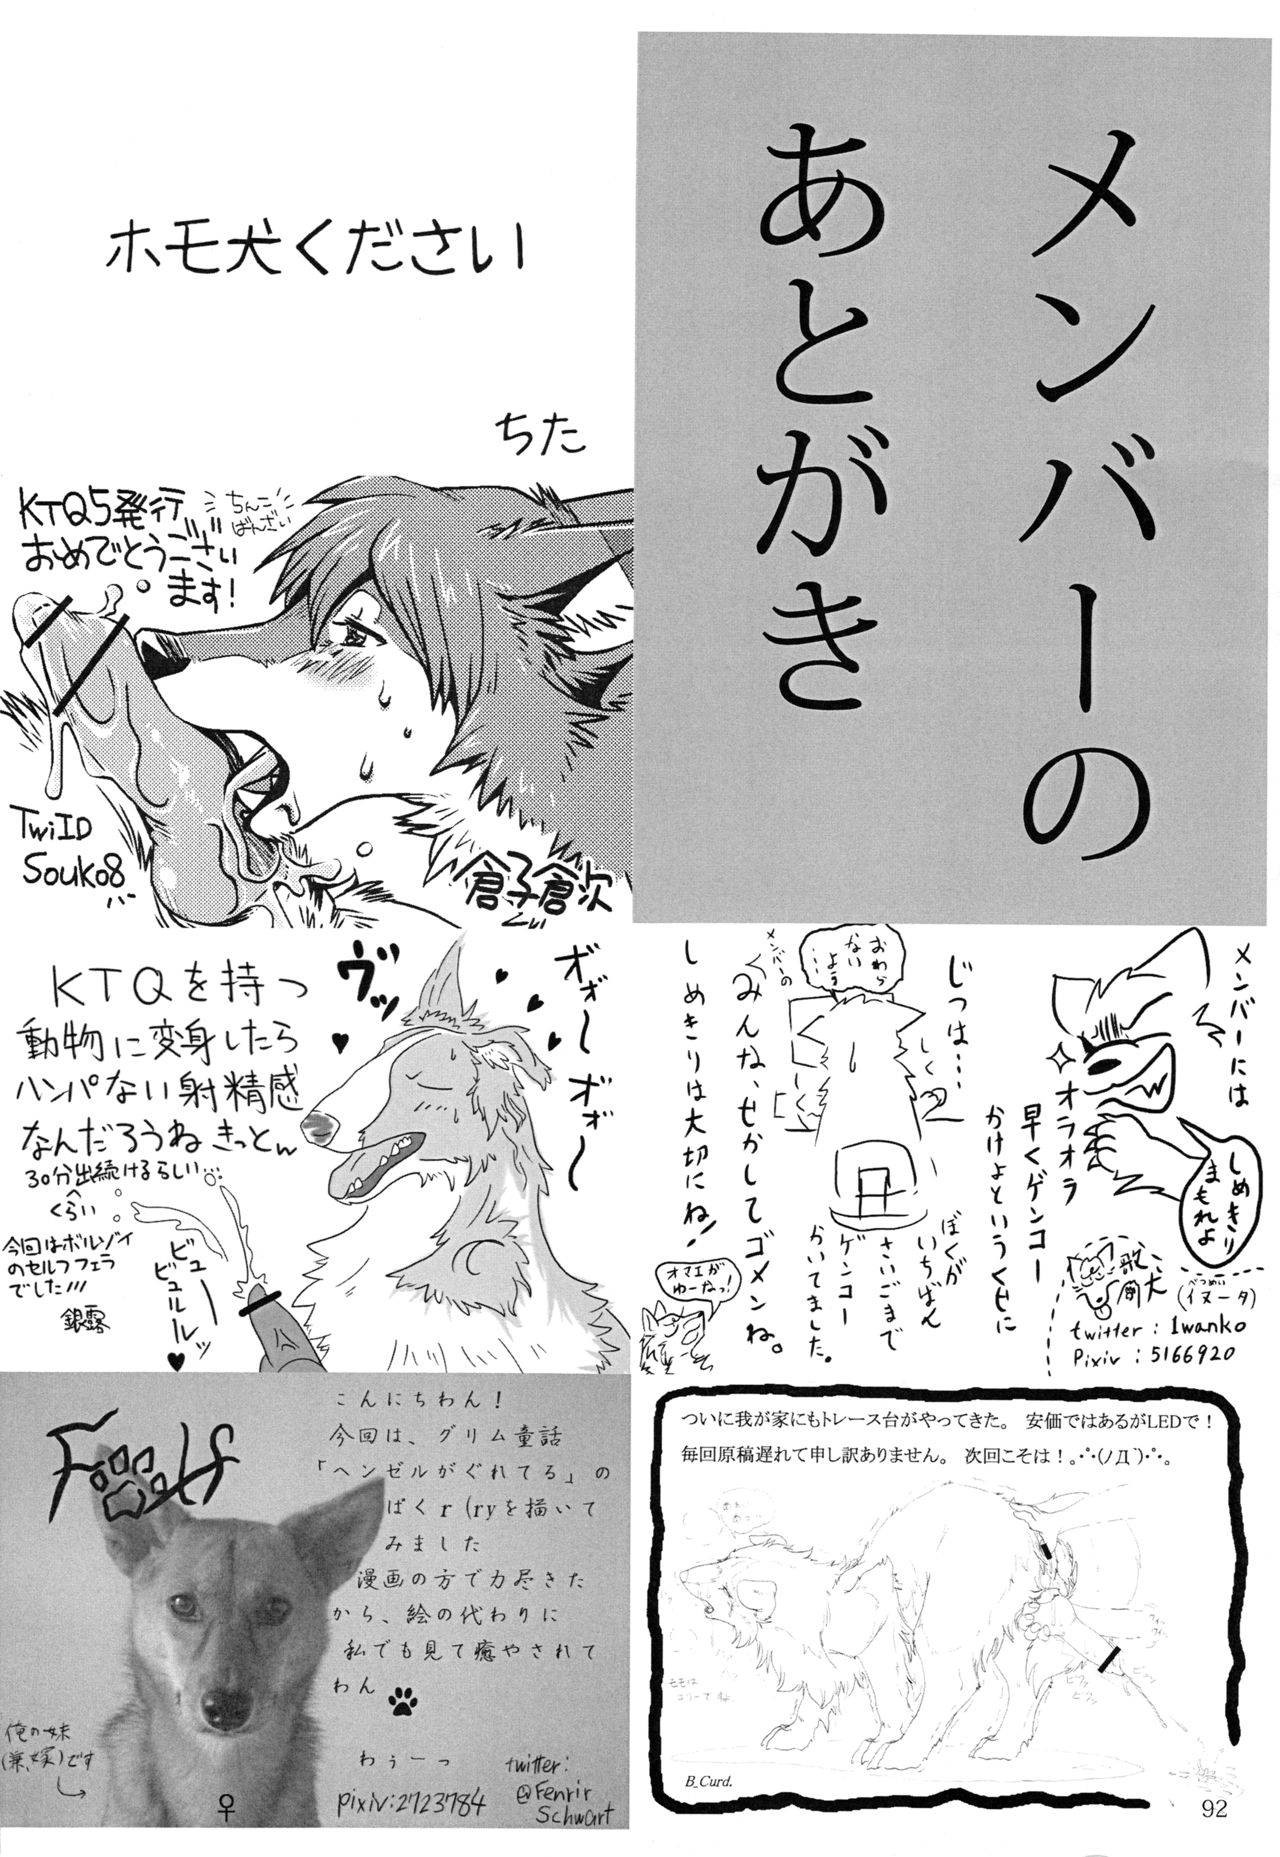 メンバーの
あとがき
ホモ犬ください
ちた
KTQ5発行
おめでとうござい
ます!
ちんこ
ばんざい
TwiID
Souko8
倉子倉次
メンバーには
しめきり
まもれよ
オラオラ
早くゲンコー
かけよというくせに
歌岡犬
べつめい
(イヌータ)
twitter : 1wanko
Pixiv : 5166920
じつは…
ぼくが
いちばん
さいごまで
ゲンコー
かいてました。
おわら
ないよう
メンバーの
みんな、せかしてゴメンね。
しめきりは大切にね!
オマエが
ゆーなっ!
KTQを持つ
動物に変身したら
ハンパない射精感
なんだろうねきっとw
30分出続けるらしい
くらい
今回はボルゾイ
のセルフフェラ
でした///
銀露
ヴッ
オォ〜
オォ〜
ビュー
ビュルルッ
こんにちわん!
今回は、グリム童話
「ヘンゼルがぐれてる」の
ぱくr(ryを描いて
みました
漫画の方で力尽きた
から、絵の代わりに
私でも見て癒やされて
わん
わぅーっ
俺の妹
(兼、嫁)です
♀
pixiv:2723784
twitter:
@Fenrir
Schwart
ついに我が家にもトレース台がやってきた。 安価ではあるがLEDで!
毎回原稿遅れて申し訳ありません。 次回こそは!｡ﾟ･(ノД`)･ﾟ｡
モモは
コリーですね
B_Curd.
92